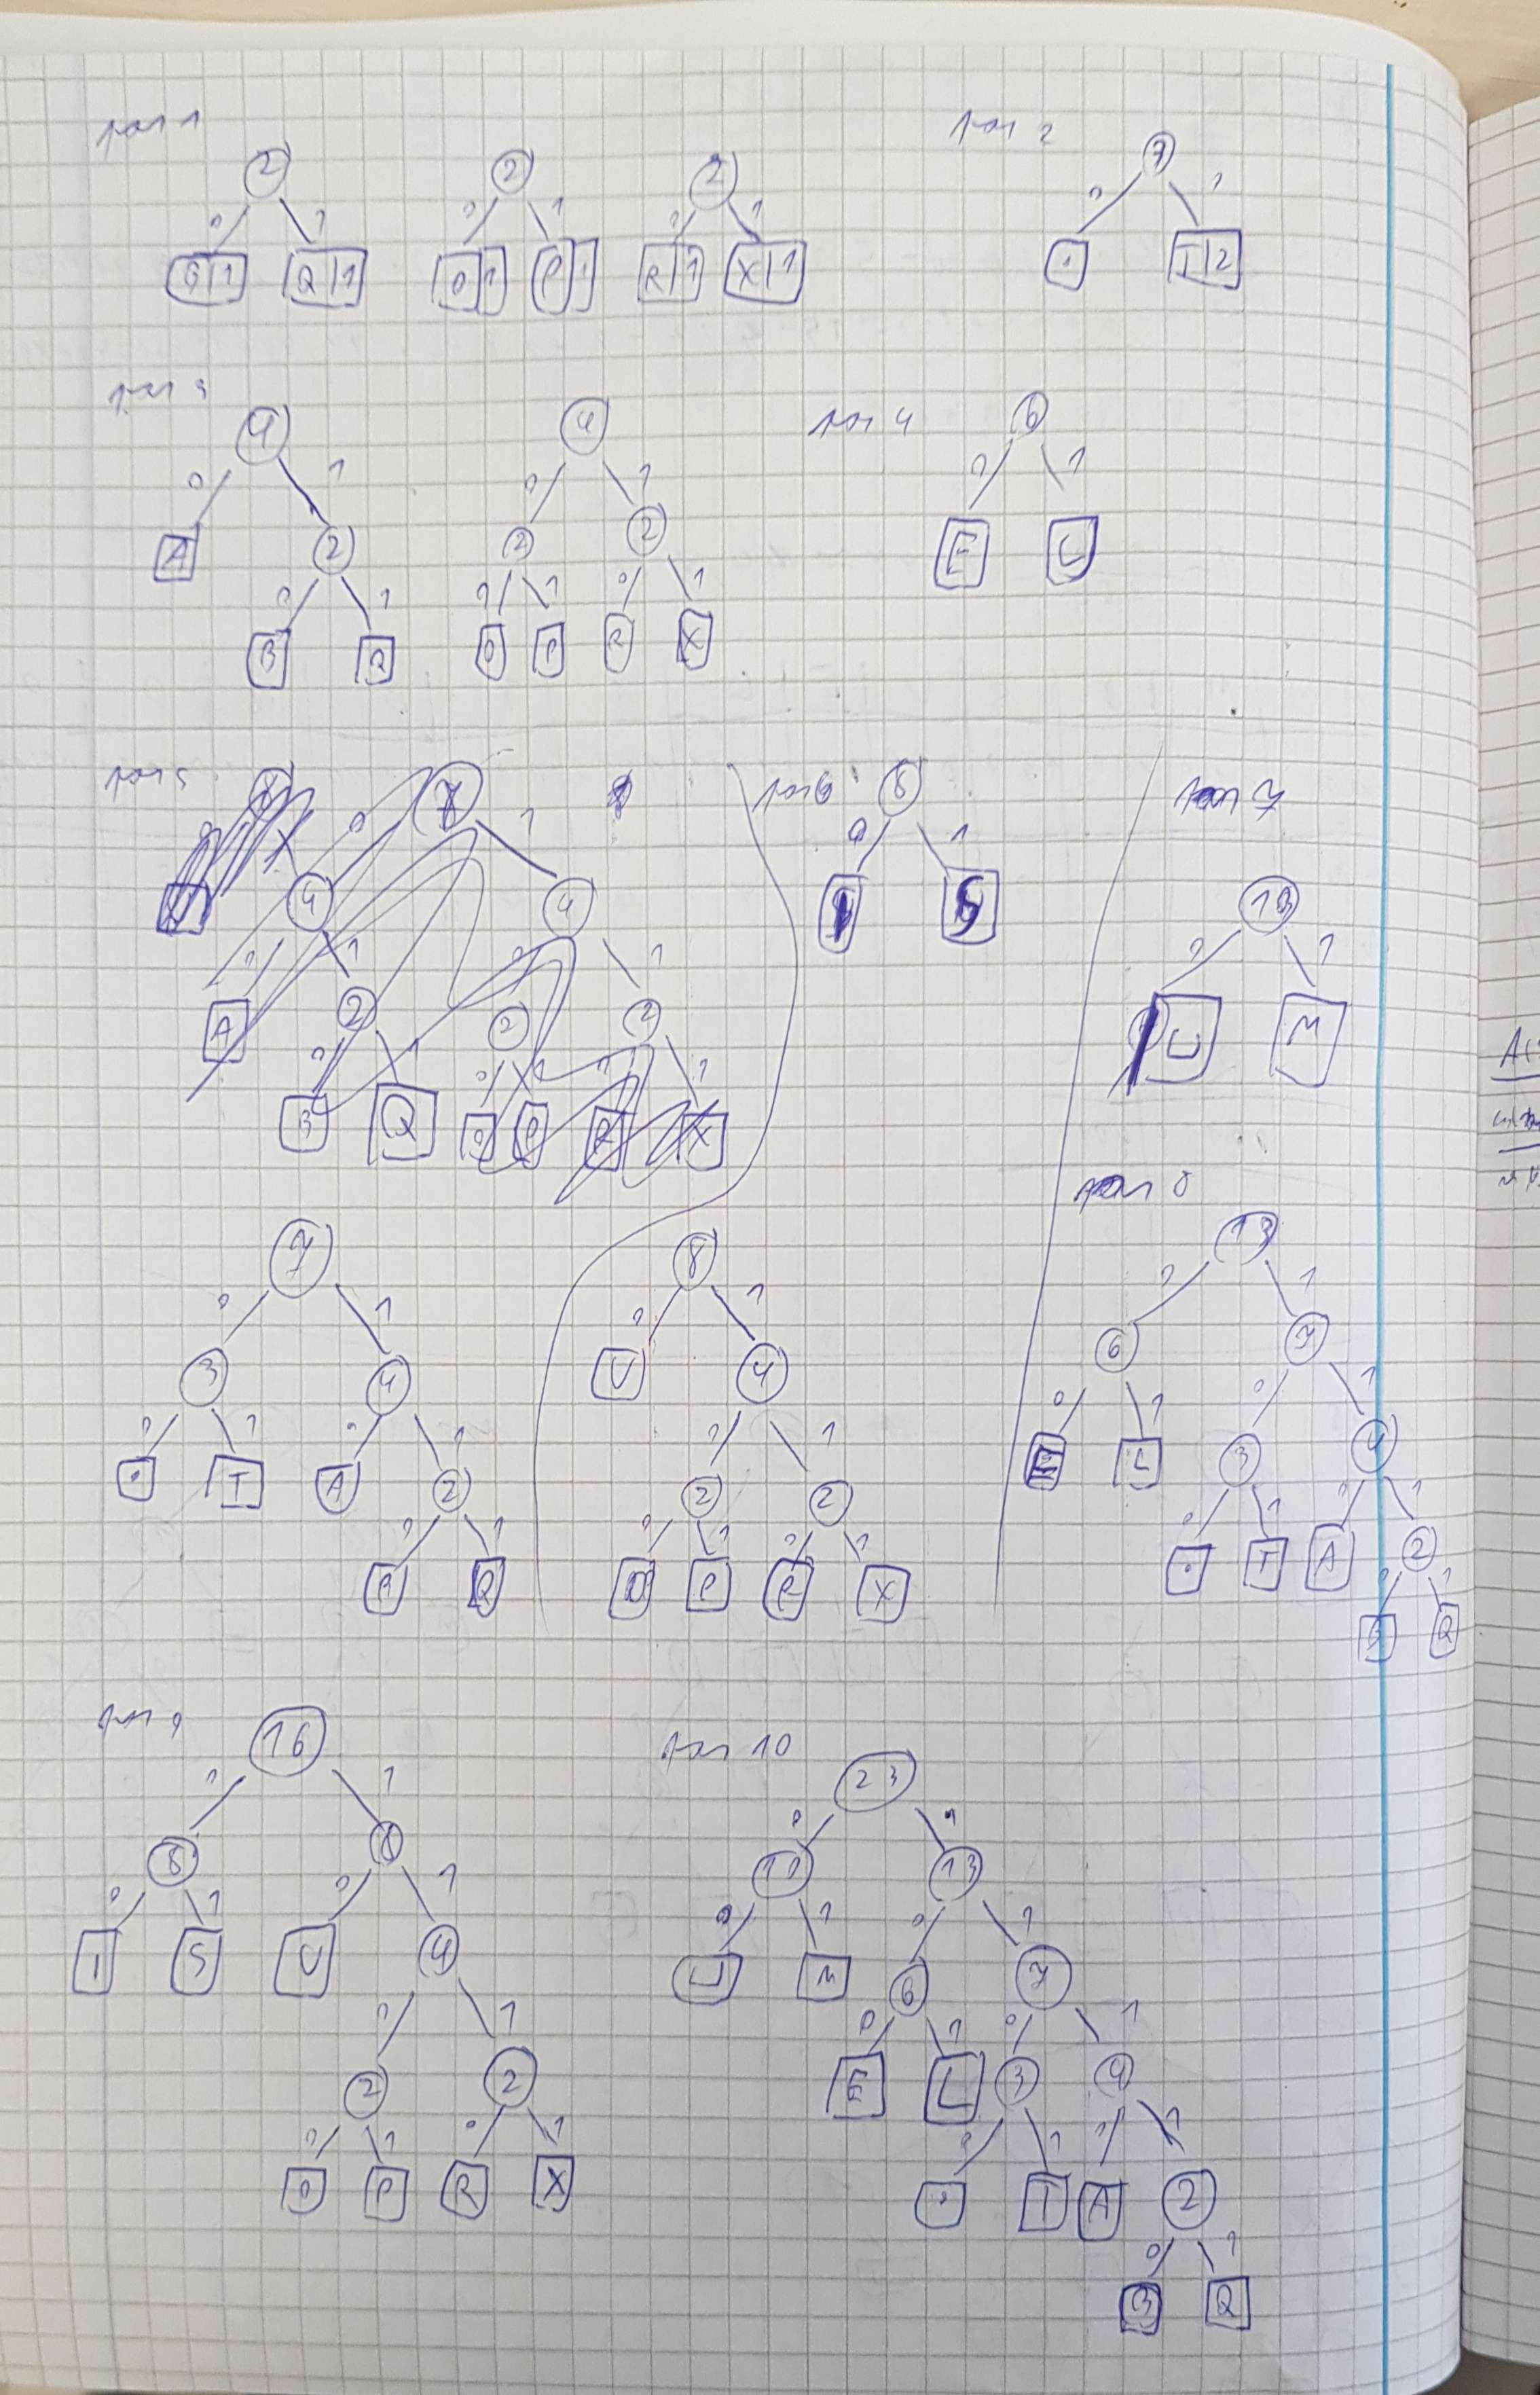 pas 1
2 2 2
0 1 0 1 0 1
B|1 Q|1 O|1 P|1 R|1 X|1
pas 2
0 1
. T|2
pas 3
4 4
0 1 0 1
A 2 2 2
0 1 0 1 0 1
B Q O P R X
pas 4
6
0 1
E L
pas 5
4 4
A 2 2 2
B Q
pas 6
8
0 1
I S
pas 7
0 1
U M
7
0 1
3 4
0 1 0 1
. T A 2
0 1
B Q
8
0 1
U 4
0 1
2 2
0 1 0 1
O P R X
pas 8
13
0 1
6 7
0 1 0 1
E L 3 4
0 1 0 1
. T A 2
0 1
B Q
pas 9
16
0 1
8 8
0 1 0 1
I S U 4
0 1
2 2
0 1 0 1
O P R X
pas 10
23
0 1
13
0 1 0 1
U M 6 7
0 1 0 1
E L 3 4
0 1 0 1
. T A 2
0 1
B Q